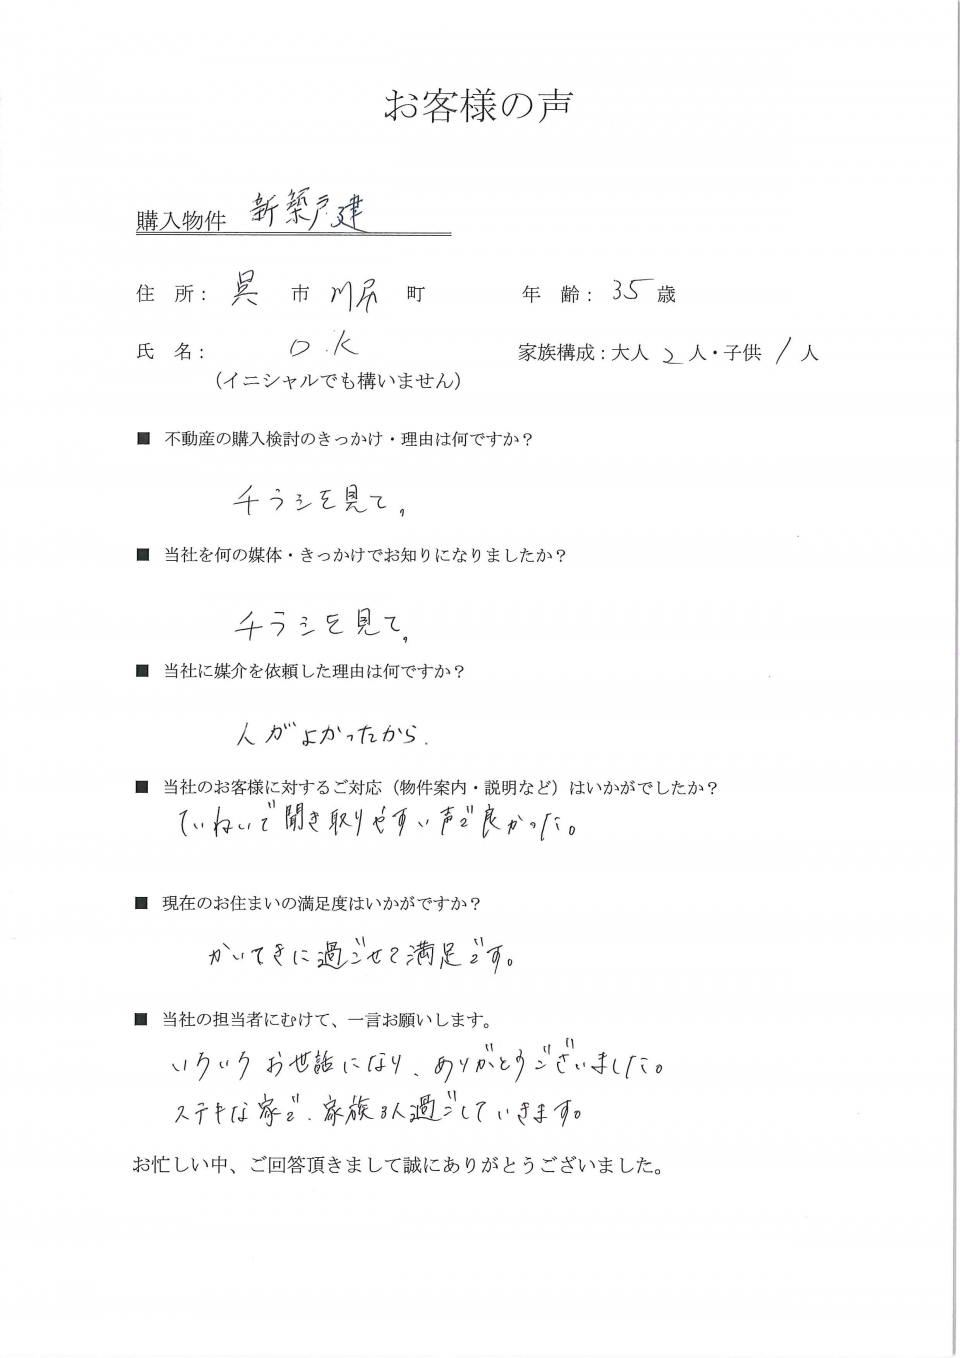 お客様の声
購入物件 新築戸建
住 所： 呉 市 川尻 町 年 齢： 35 歳
氏 名： O.K 家族構成：大人 2 人・子供 1 人
（イニシャルでも構いません）
■ 不動産の購入検討のきっかけ・理由は何ですか？
チラシを見て。
■ 当社を何の媒体・きっかけでお知りになりましたか？
チラシを見て。
■ 当社に媒介を依頼した理由は何ですか？
人がよかったから.
■ 当社のお客様に対するご対応（物件案内・説明など）はいかがでしたか？
ていねいで聞き取りやすい声で良かった。
■ 現在のお住まいの満足度はいかがですか？
かいてきに過ごせて満足です。
■ 当社の担当者にむけて、一言お願いします。
いろいろお世話になり、ありがとうございました。
ステキな家で、家族3人過ごしていきます。
お忙しい中、ご回答頂きまして誠にありがとうございました。